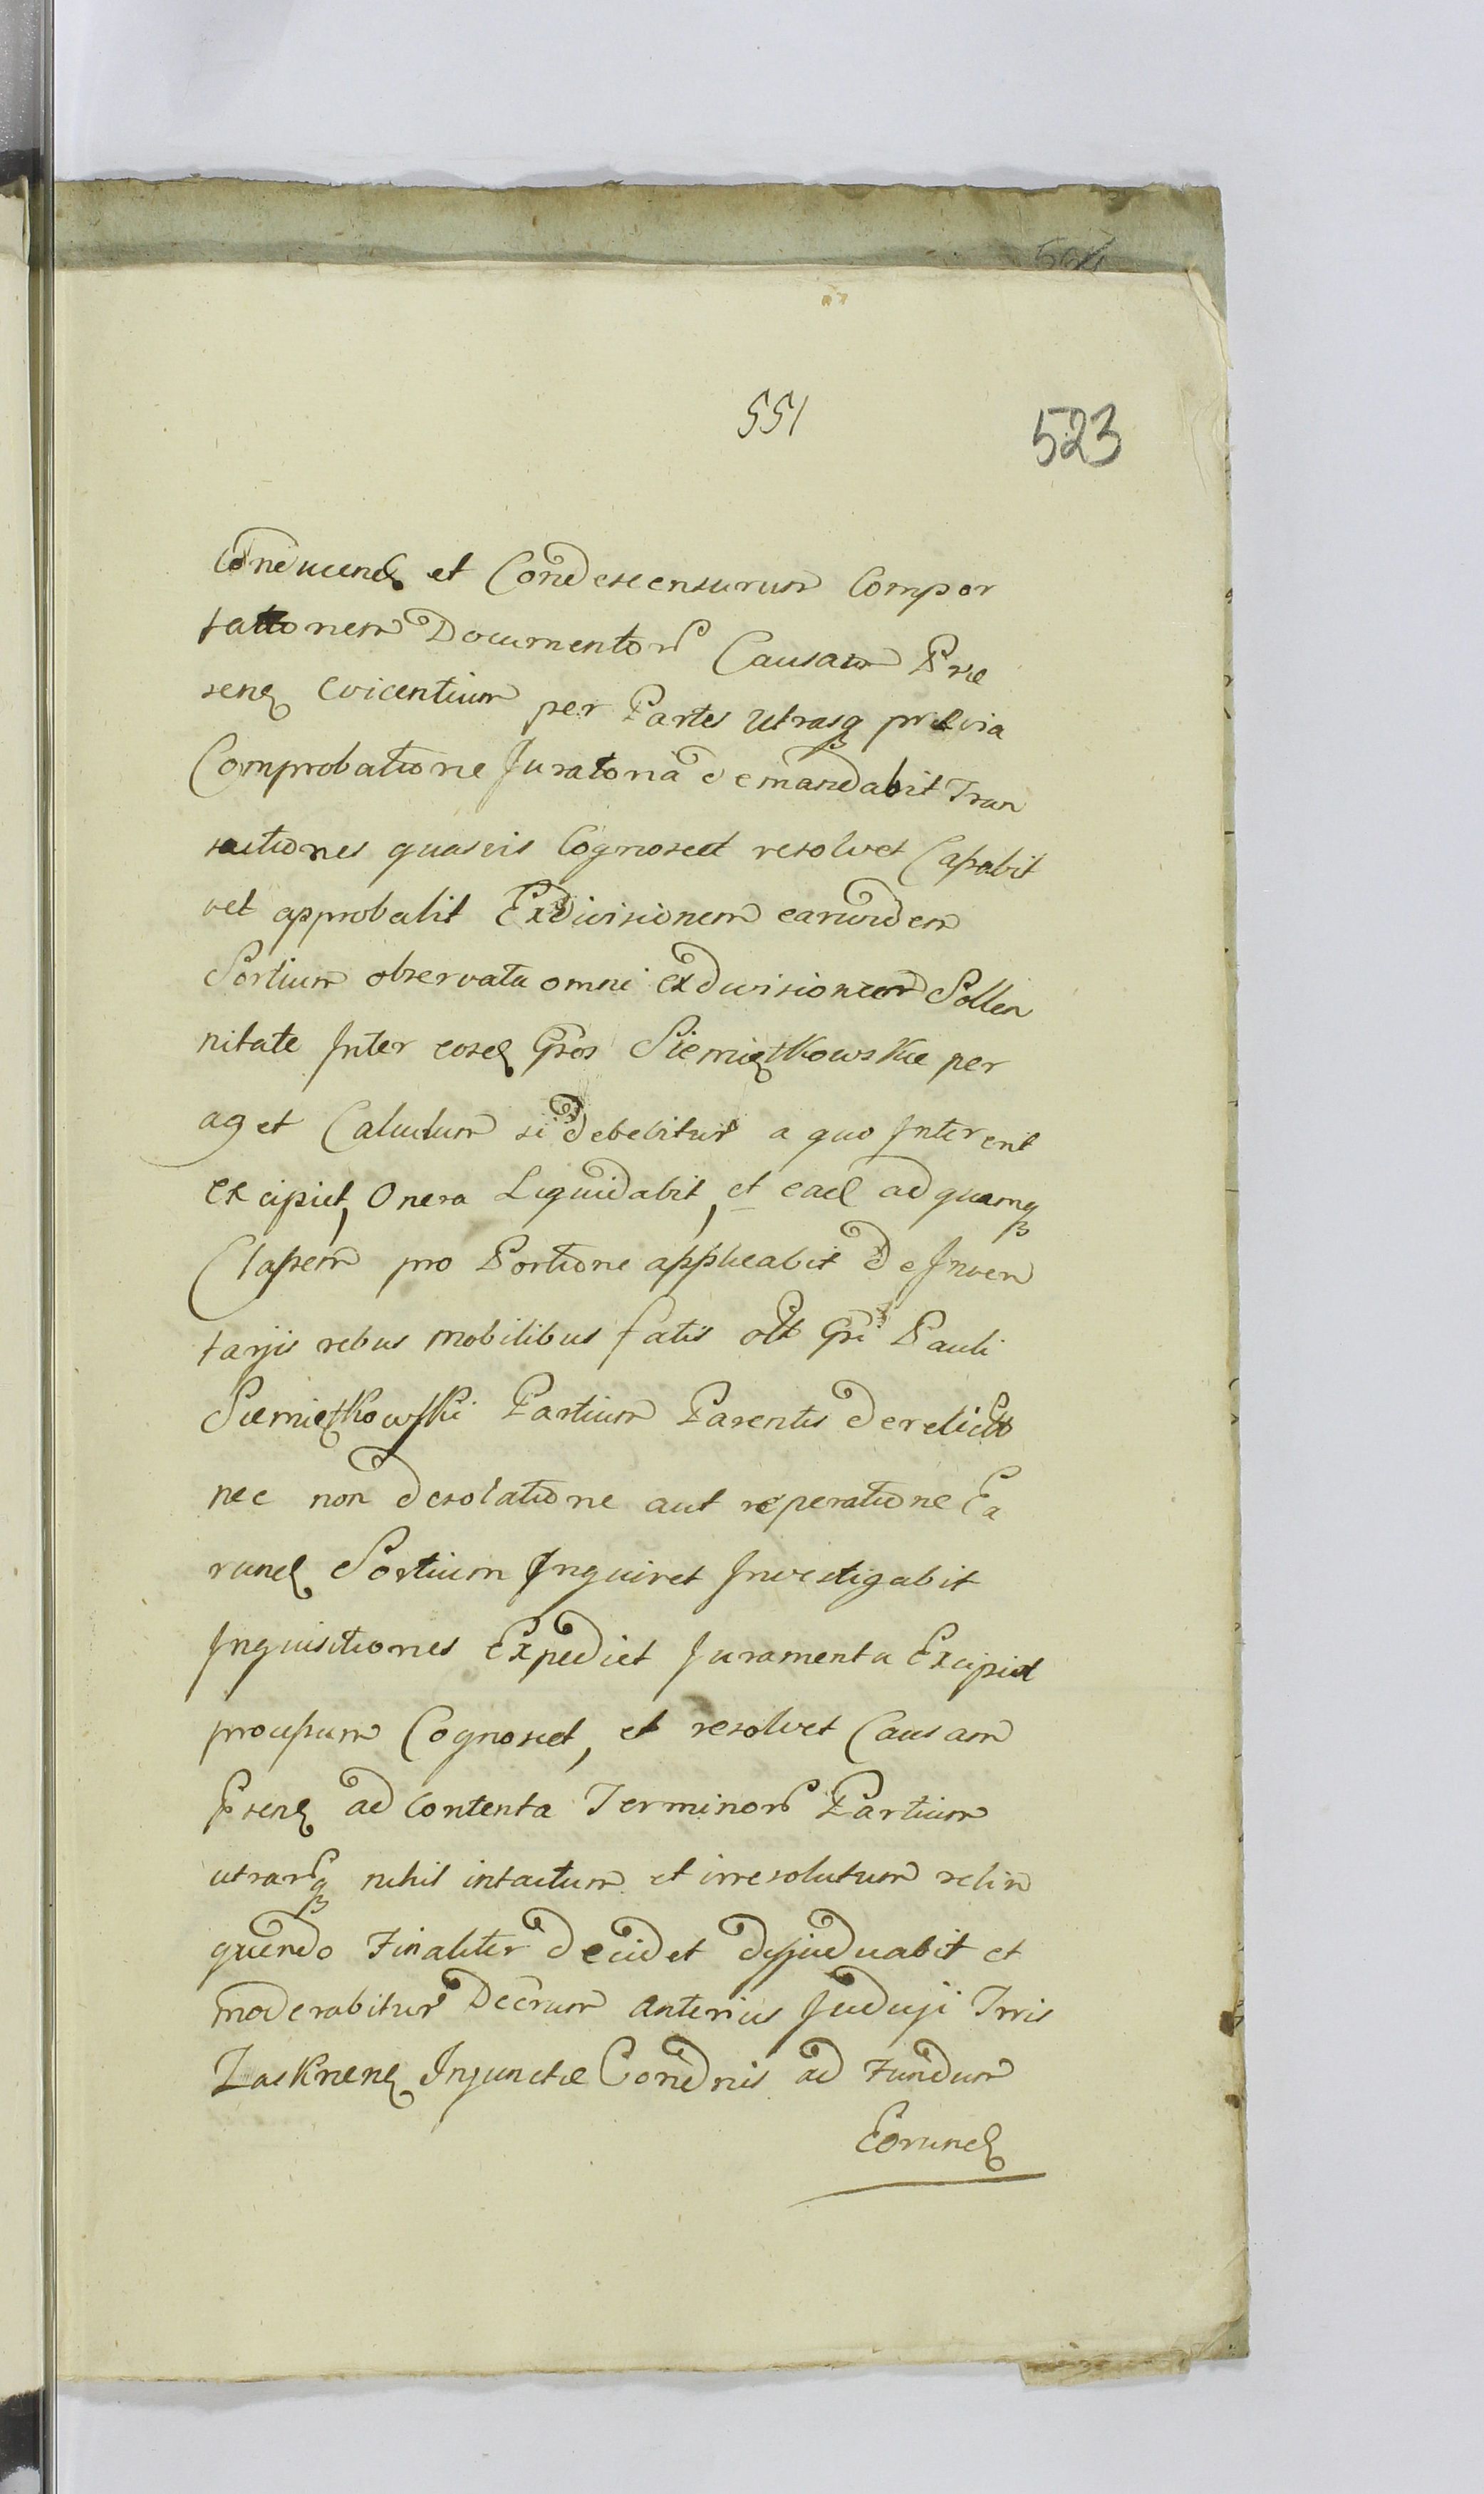 551
523
Conducen et Condescensurum Compor
tationem Documentor Causam Præ
sen Evicentium per Partes Utrasq prævia
Comprobatione Juratoria demandabit Tran
sactiones quasvis Cognoscet resolvet Cassabit
vel approbabit Exdivisionem earundem
Sortium observata omni exdivisionum Sollen
nitate Inter eosd Gsos Siemiętkowskie per
aget Calculum si debebitur a quo Intererit
excipiet, Onera Liquidabit, et ead ad quamq
Classem pro Portione applicabit de Inven
tarjis rebus mobilibus fatis olt Gsi Pauli
Siemiętkowski Partium Parentis derelict
nec non desolatione aut reperatione Ea
rund Sortium Inquiret Investigabit
Inquisitiones Expediet Juramenta Excipiet
processum Cognoscet, et resolvet Causam
Psen ad Contenta Terminor Partium
utrarq nihil intactum et irresolutum relin
quendo Finaliter decidet dijudicabit et
moderabitur Decrum anterius Judicji Trris
Łasknen Injunctæ Condnis ad Fundum
Eorund